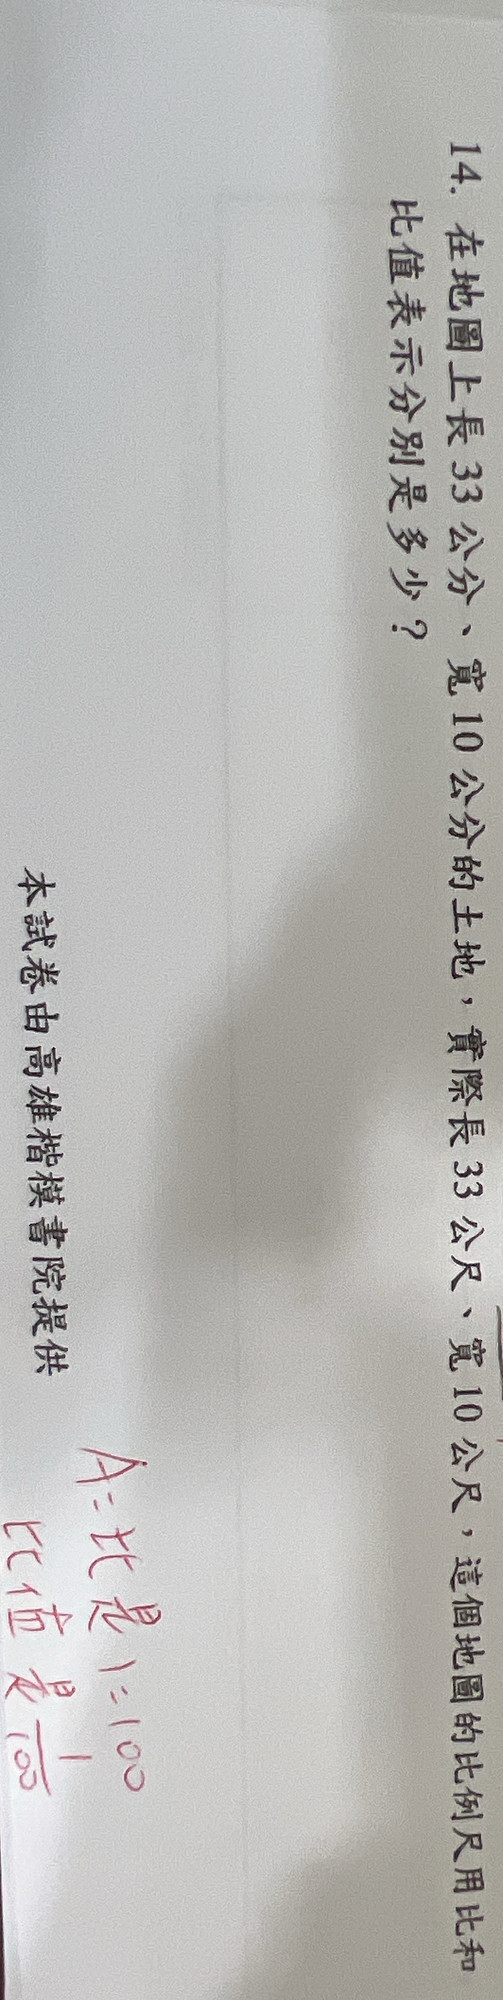 14. 在地圖上長 33 公分、寬 10 公分的土地，實際長 33 公尺、寬 10 公尺，這個地圖的比例尺用比和
比值表示分別是多少？
本試卷由高雄楷模書院提供
A：比是 1：100
比值是 1/100